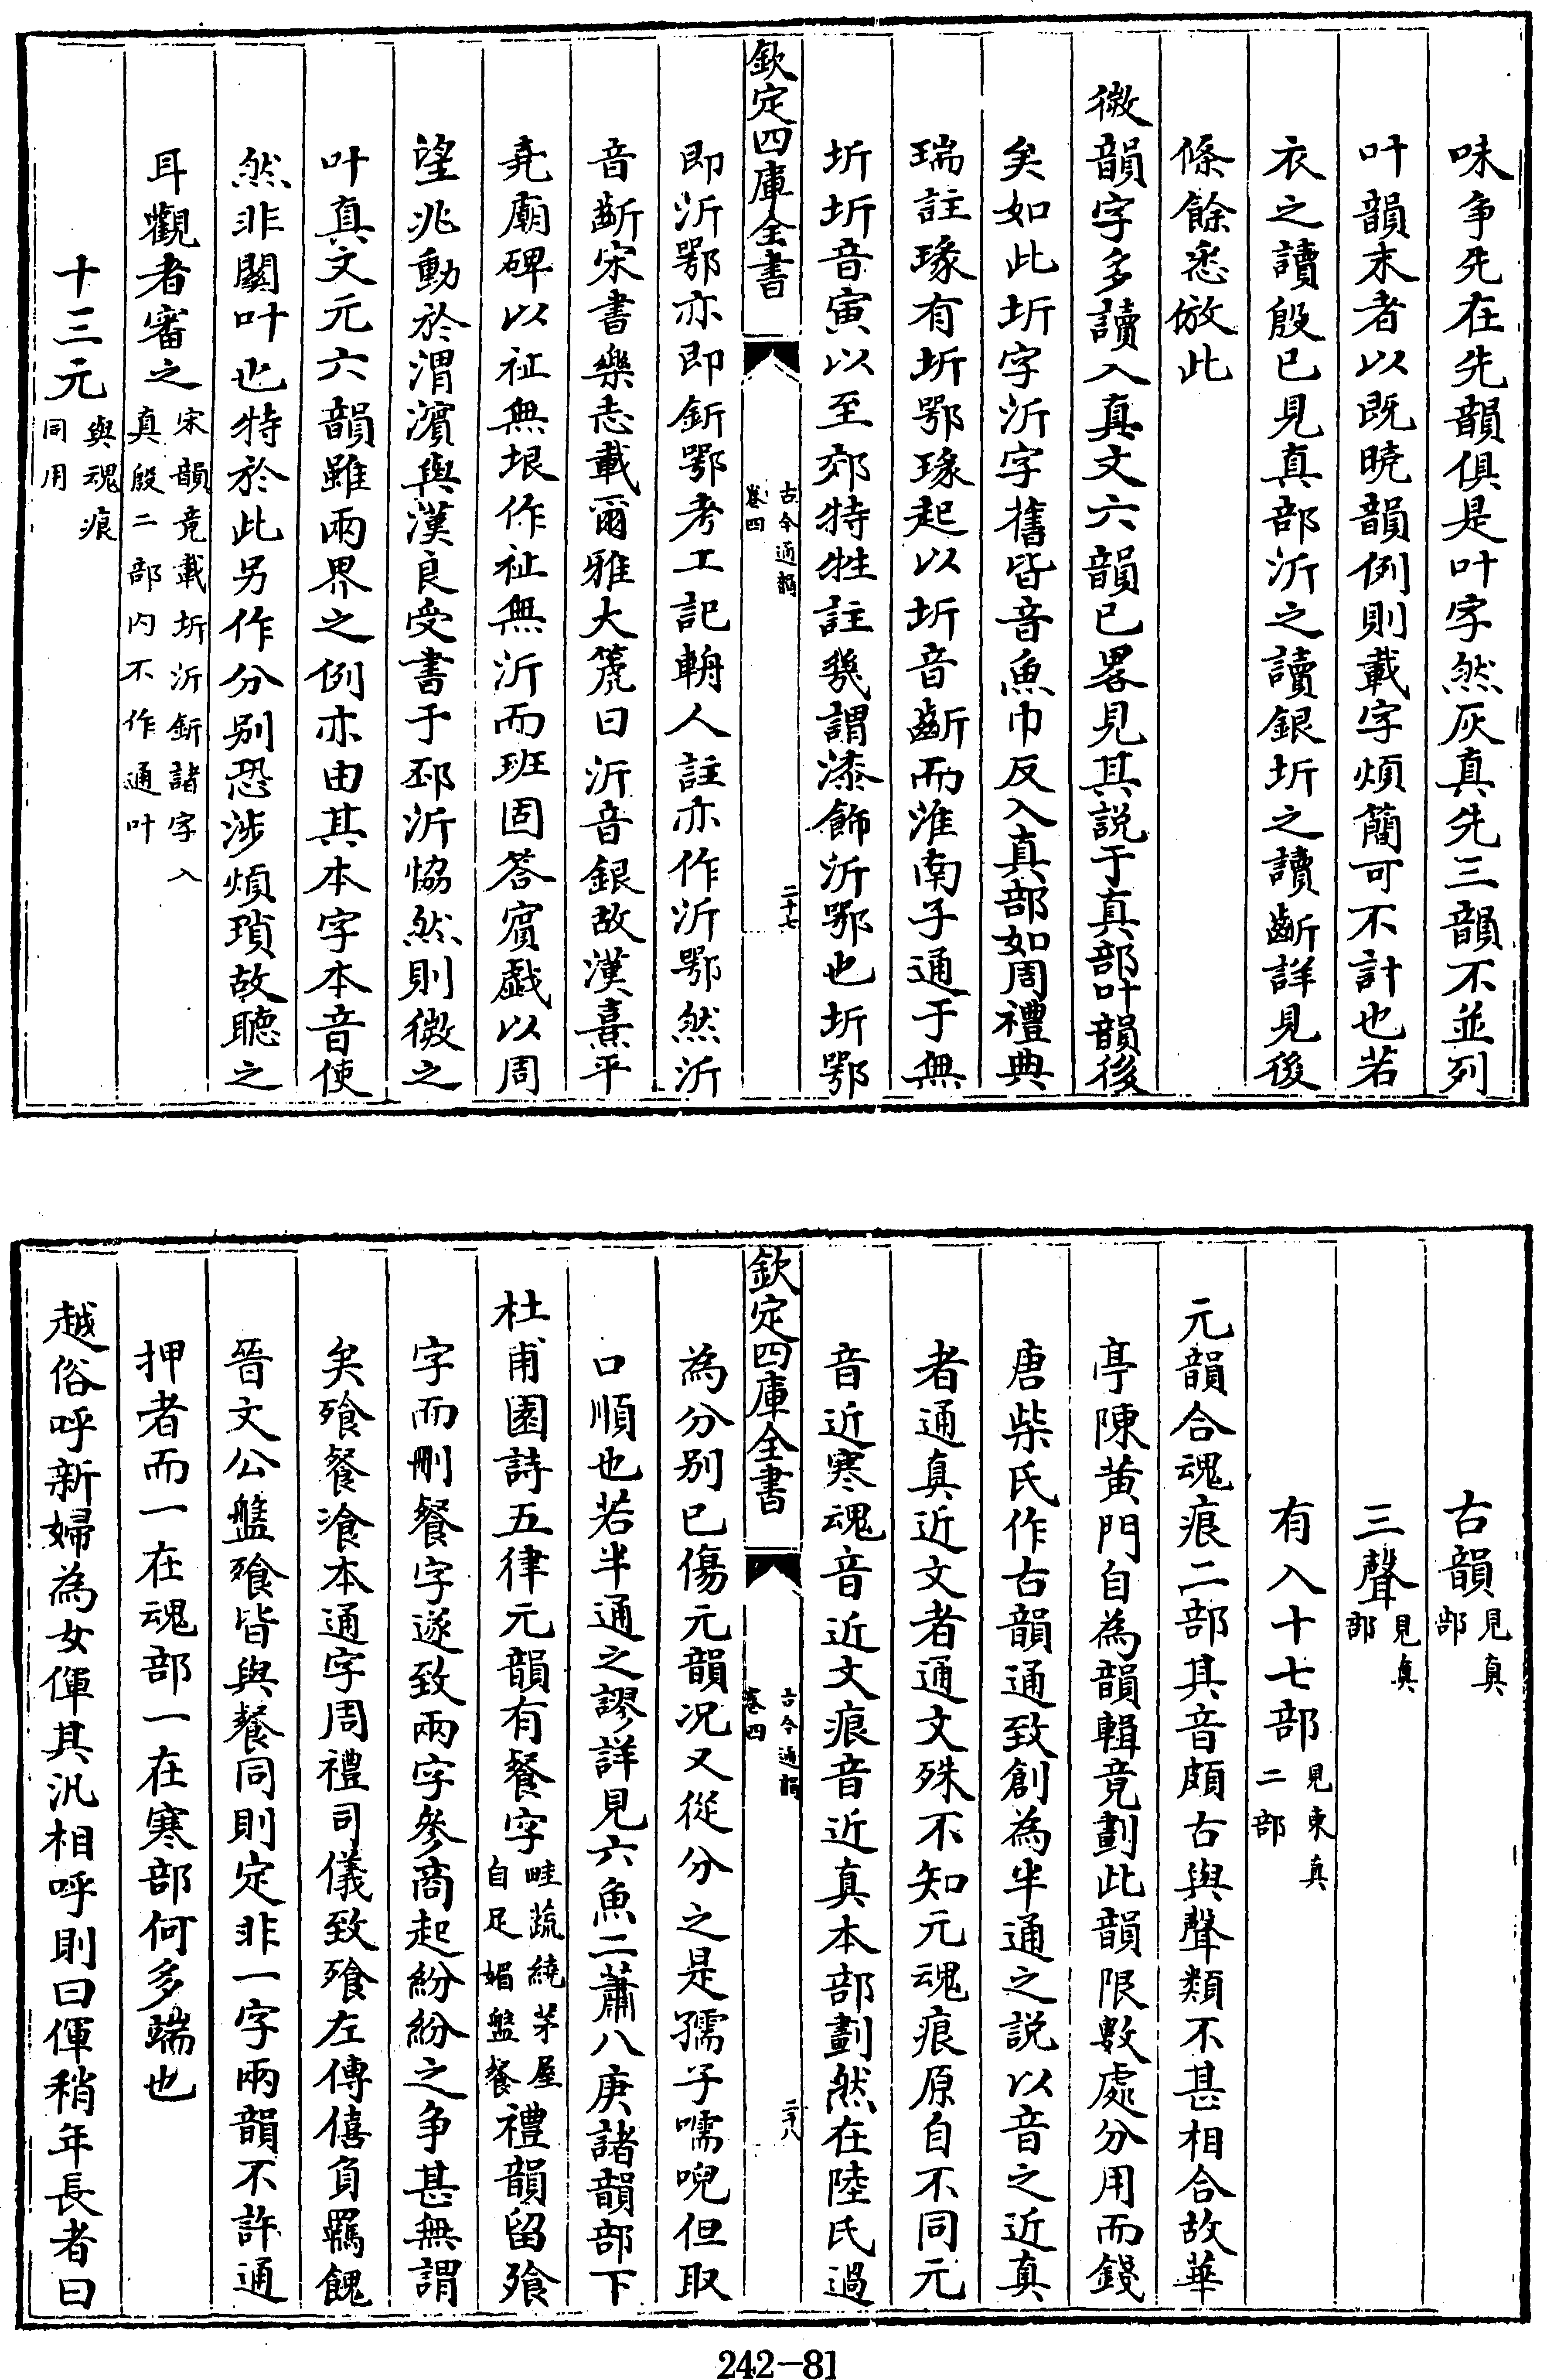 味争先在先韻俱是叶字然灰真先三韻不並列
叶韻末者以既曉韻例則載字煩簡可不計也若
衣之讀殷已見真部沂之讀銀圻之讀齗詳見後
條餘悉倣此
微韻字多讀入真文六韻已畧見其説于真部叶韻後
矣如此圻字沂字舊皆音魚巾反入真部如周禮典
瑞註瑑有圻鄂瑑起以圻音齗而淮南子通于無
圻圻音寅以至郊特牲註㡬謂漆飾沂鄂也圻鄂
欽定四庫全書
古今通韻
卷四
二十七
即沂鄂亦即釿鄂考工記輈人註亦作沂鄂然沂
音齗宋書樂志載爾雅大箎曰沂音銀故漢熹平
堯廟碑以祉無垠作祉無沂而班固答賓戯以周
望兆動於渭濱與漢良受書于邳沂恊然則微之
叶真文元六韻雖兩界之例亦由其本字本音使
然非關叶也特於此另作分别恐涉煩瑣故聴之
耳觀者審之宋韻竟載圻沂釿諸字入
真殷二部内不作通叶
十三元與魂痕
同用
古韻見真
部
三聲見真
部
有入十七部見東真
二部
元韻合魂痕二部其音頗古與聲類不甚相合故華
亭陳黄門自為韻輯竟劃此韻限數處分用而錢
唐柴氏作古韻通致創為半通之説以音之近真
者通真近文者通文殊不知元魂痕原自不同元
音近寒魂音近文痕音近真本部劃然在陸氏過
欽定四庫全書
古今通韻
卷四
二十八
為分别已傷元韻况又從分之是孺子嚅唲但取
口順也若半通之謬詳見六魚二蕭八庚諸韻部下
杜甫園詩五律元韻有餐字畦蔬繞茅屋
自足媚盤餐禮韻留飱
字而刪餐字遂致兩字參商起紛紛之争甚無謂
矣飱餐湌本通字周禮司儀致飱左傳僖負羈餽
晉文公盤飱皆與餐同則定非一字兩韻不許通
押者而一在魂部一在寒部何多端也
越俗呼新婦為女㑮其汎相呼則曰㑮稍年長者曰
242-81